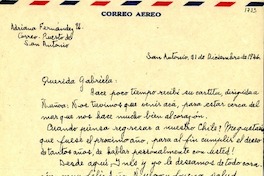 CORREO AEREO
Adriana Fernández U.
Correo. Puerto de
San Antonio
1723
San Antonio, 21 de Diciembre de 1946.
Querida Gabriela:
Hace poco tiempo recibí su cartita, dirigida a
Ñuñoa: Nos tuvimos que venir acá, para estar cerca del
mar que nos hace mucho bien al corazón.
Cuándo piensa regresar a nuestro Chile?
que fuese el próximo año, para al fin cumplir el deseo
de tantos años, de hablar personalmente con usted!
Desde aquí, y yo le deseamos de todo